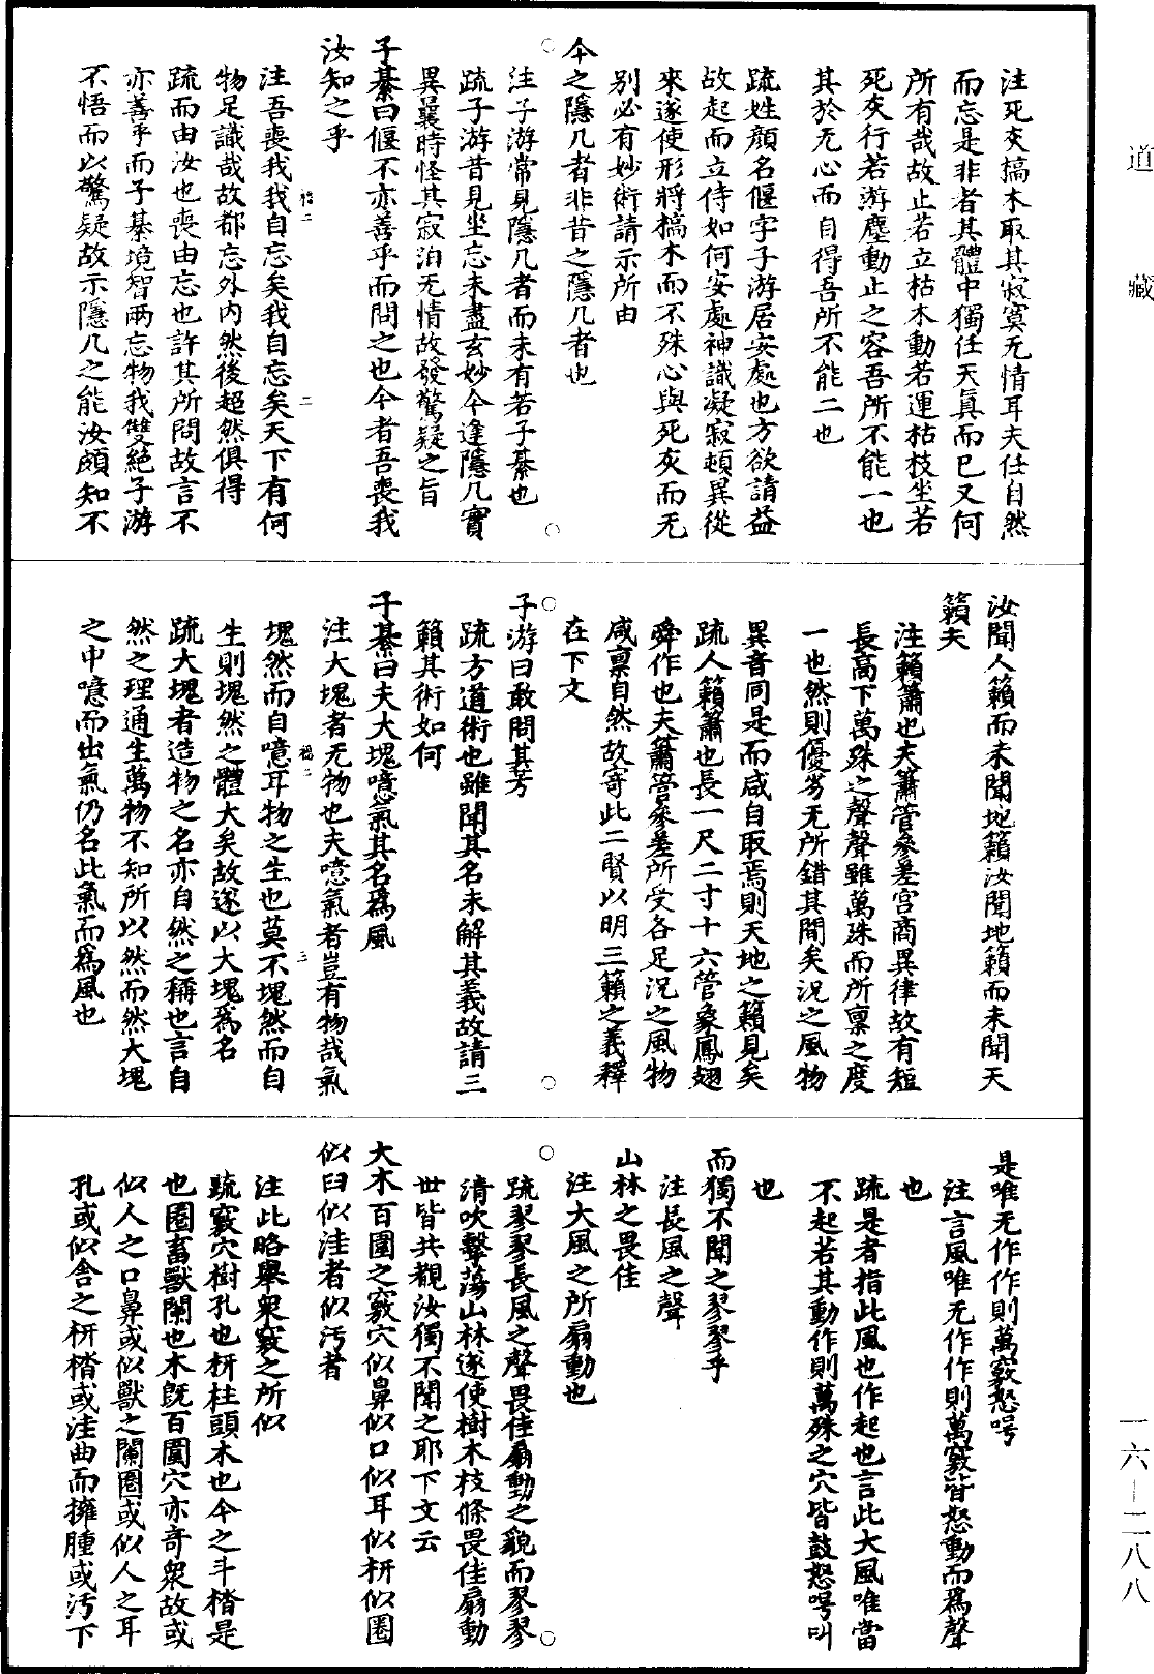 道藏
注死灰槁木取其寂寞无情耳夫任自然
而忘是非者其體中獨任天真而已又何
所有哉故止若立枯木動若運枯枝坐若
死灰行若游塵動止之容吾所不能一也
其於无心而自得吾所不能二也
疏姓顔名偃字子游居安處也方欲請益
故起而立侍如何安處神識凝寂頓異從
來遂使形將槁木而不殊心與死灰而无
别必有妙術請示所由
今之隱几者非昔之隱几者也
注子游常見隱几者而未有若子綦也
疏子游昔見坐忘未盡玄妙今逢隱几實
異曩時怪其寂泊无情故發驚疑之旨
子綦曰偃不亦善乎而問之也今者吾喪我
汝知之乎
注吾喪我我自忘矣我自忘矣天下有何
物足識哉故都忘外内然後超然俱得
疏而由汝也喪由忘也許其所問故言不
亦善乎而子綦境智兩忘物我雙絶子游
不悟而以驚疑故示隱几之能汝頗知不
汝聞人籟而未聞地籟汝聞地籟而未聞天
籟夫
注籟簫也夫簫管參差宫商異律故有短
長高下萬殊之聲聲雖萬殊而所禀之度
一也然則優劣无所錯其間矣況之風物
異音同是而咸自取焉則天地之籟見矣
疏人籟簫也長一尺二寸十六管象鳳翅
舜作也夫簫管參差所受各足況之風物
咸禀自然故寄此二賢以明三籟之義釋
在下文
子游曰敢問其方
疏方道術也雖聞其名未解其義故請三
籟其術如何
子綦曰夫大塊噫氣其名爲風
注大塊者无物也夫噫氣者豈有物哉氣
塊然而自噫耳物之生也莫不塊然而自
生則塊然之體大矣故遂以大塊爲名
疏大塊者造物之名亦自然之稱也言自
然之理通生萬物不知所以然而然大塊
之中噫而出氣仍名此氣而爲風也
是唯无作作則萬竅怒呺
注言風唯无作作則萬竅皆怒動而爲聲
也
疏是者指此風也作起也言此大風唯當
不起若其動作則萬殊之穴皆鼓怒呺叫
也
而獨不聞之翏翏乎
注長風之聲
山林之畏佳
注大風之所扇動也
疏翏翏長風之聲畏佳扇動之貌而翏翏
清吹擊蕩山林遂使樹木枝條畏佳扇動
世皆共觀汝獨不聞之耶下文云
大木百圍之竅穴似鼻似口似耳似枅似圈
似臼似洼者似污者
注此略舉衆竅之所似
疏竅穴樹孔也枅柱頭木也今之斗楷是
也圈畜獸闌也木既百圍穴亦奇衆故或
似人之口鼻或似獸之闌圈或似人之耳
孔或似舍之枅楷或洼曲而擁腫或污下
一六—二八八